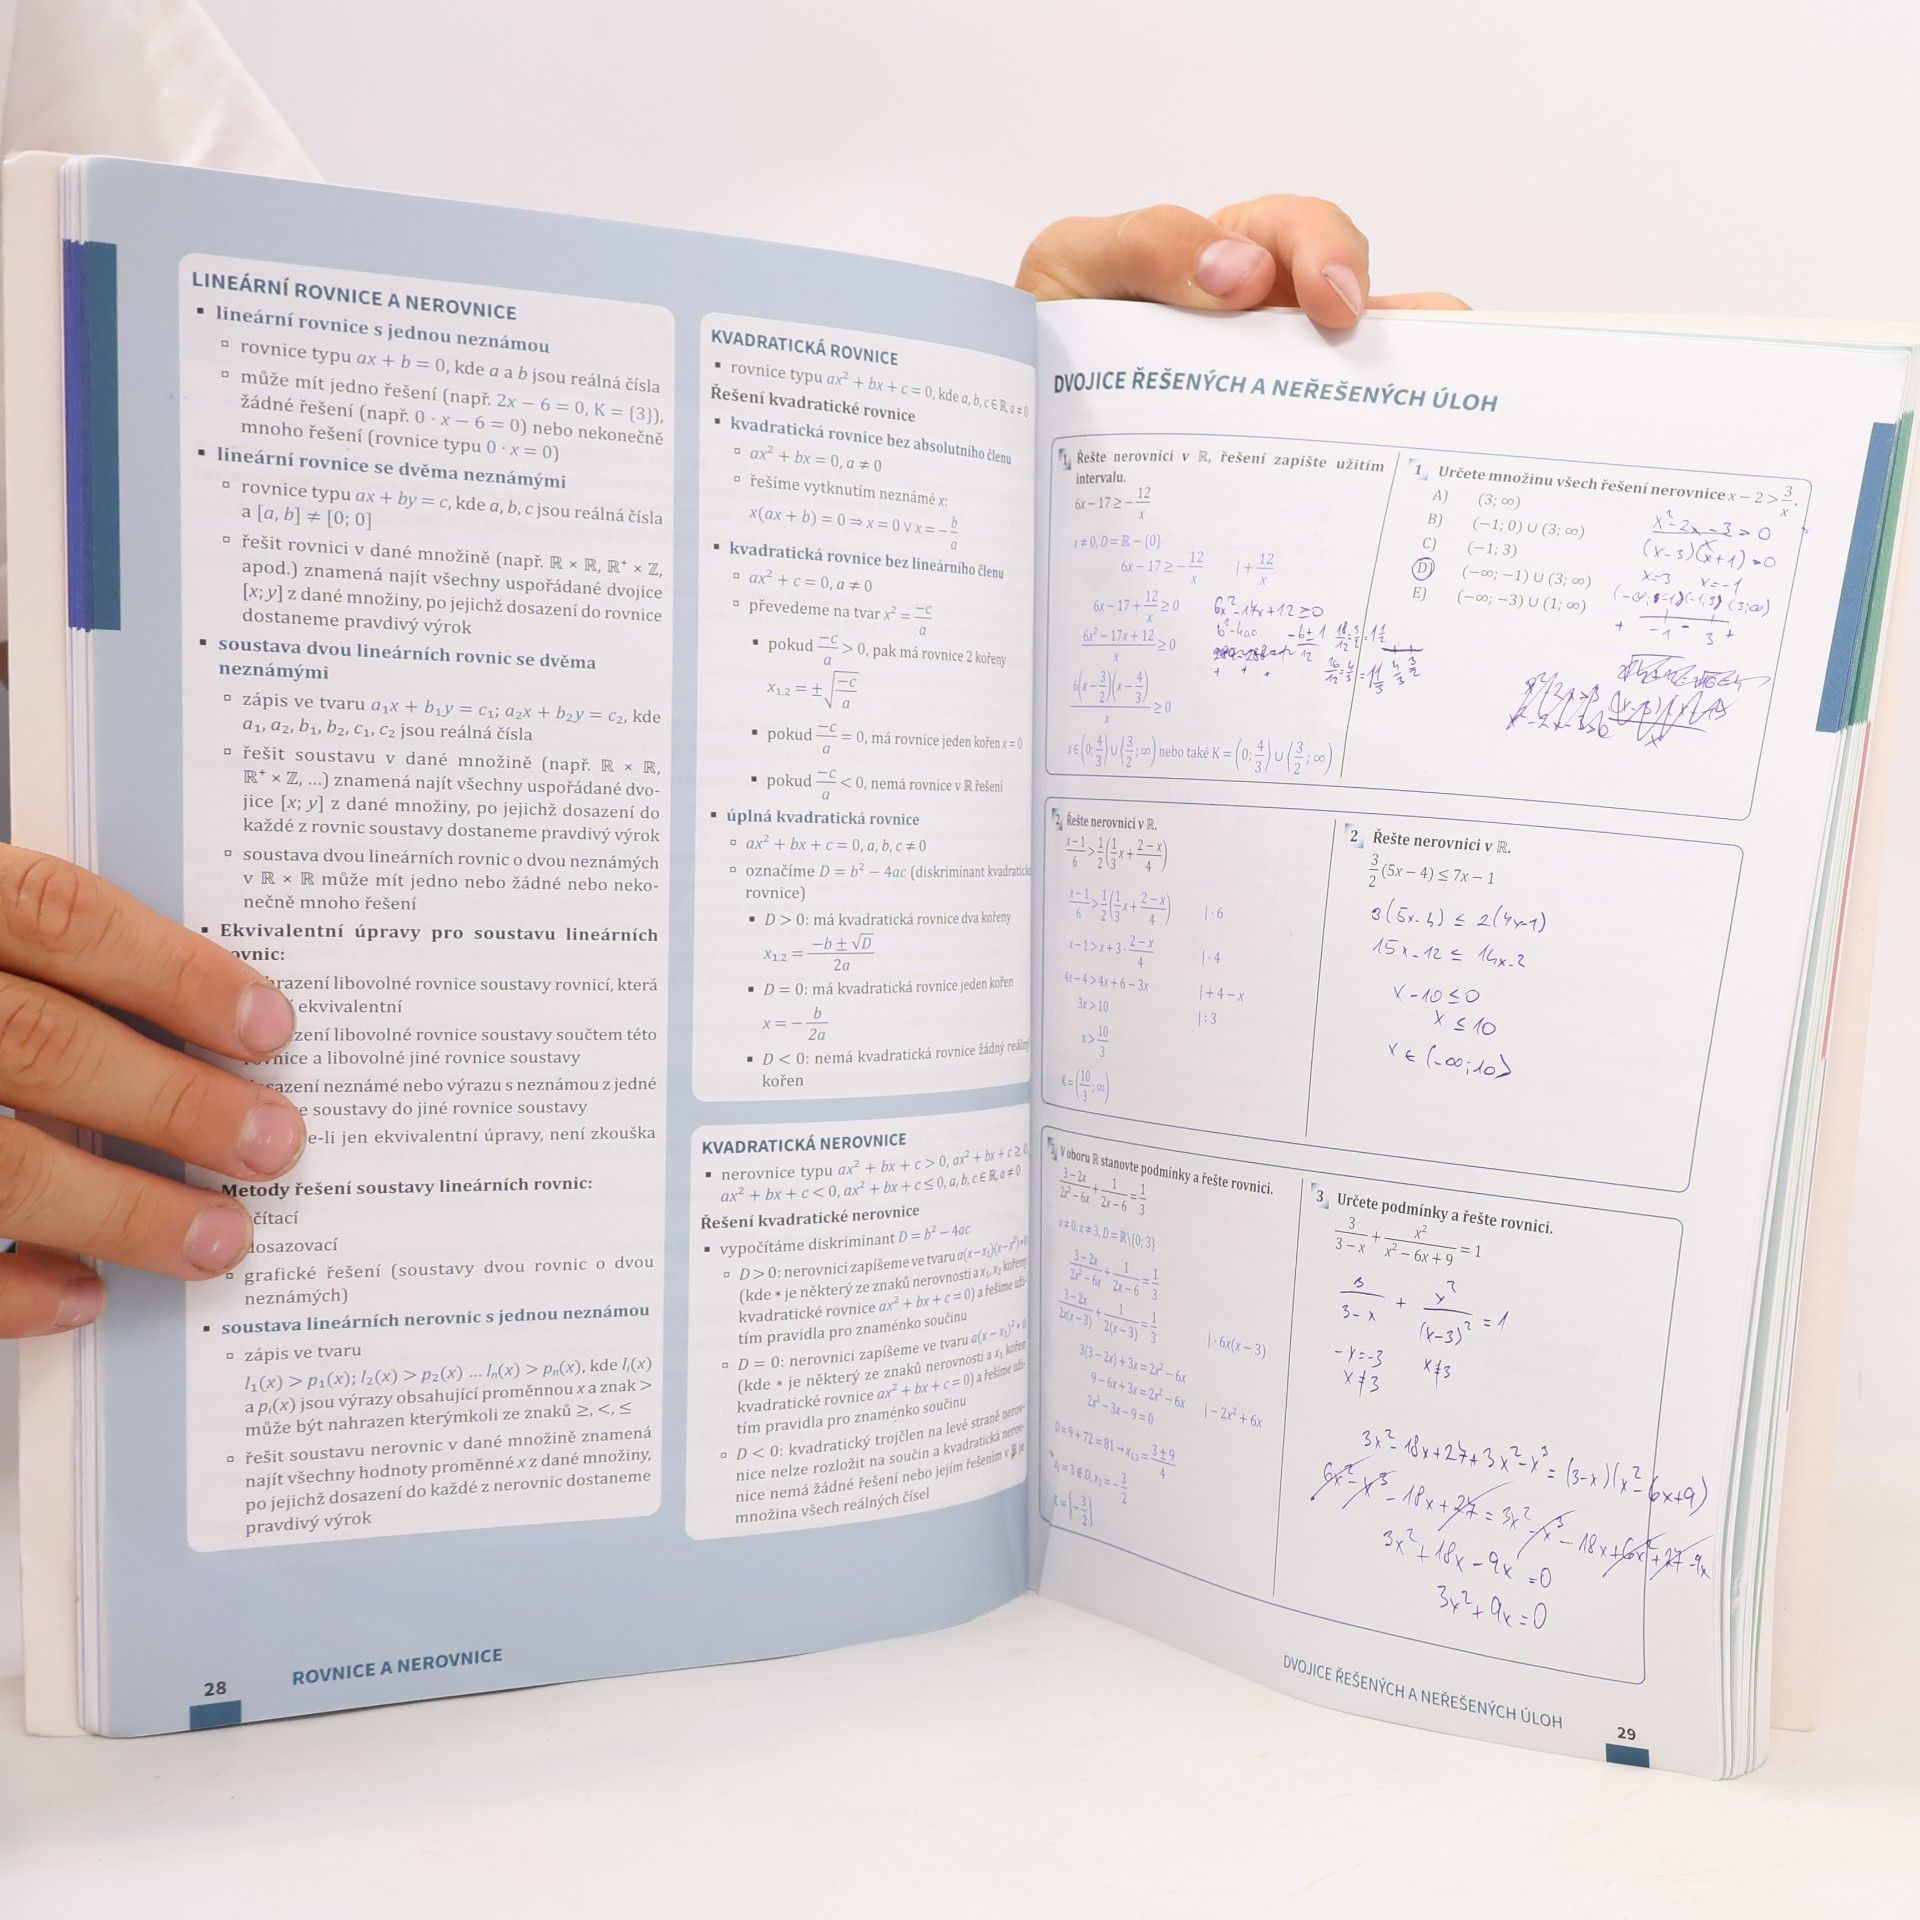 LINEÁRNÍ ROVNICE A NEROVNICE
▪ lineární rovnice s jednou neznámou
▫ rovnice typu ax + b = 0, kde a a b jsou reálná čísla
▫ může mít jedno řešení (např. 2x − 6 = 0, K = {3}),
žádné řešení (např. 0 · x − 6 = 0) nebo nekonečně
mnoho řešení (rovnice typu 0 · x = 0)
▪ lineární rovnice se dvěma neznámými
▫ rovnice typu ax + by = c, kde a, b, c jsou reálná čísla
a [a, b] ≠ [0; 0]
▫ řešit rovnici v dané množině (např. ℝ × ℝ, ℝ⁺ × ℤ,
apod.) znamená najít všechny uspořádané dvojice
[x; y] z dané množiny, po jejichž dosazení do rovnice
dostaneme pravdivý výrok
▪ soustava dvou lineárních rovnic se dvěma
neznámými
▫ zápis ve tvaru a₁x + b₁y = c₁; a₂x + b₂y = c₂, kde
a₁, a₂, b₁, b₂, c₁, c₂ jsou reálná čísla
▫ řešit soustavu v dané množině (např. ℝ × ℝ,
ℝ⁺ × ℤ, ...) znamená najít všechny uspořádané dvo-
jice [x; y] z dané množiny, po jejichž dosazení do
každé z rovnic soustavy dostaneme pravdivý výrok
▫ soustava dvou lineárních rovnic o dvou neznámých
v ℝ × ℝ může mít jedno nebo žádné nebo neko-
nečně mnoho řešení
▪ Ekvivalentní úpravy pro soustavu lineárních
ovnic:
razení libovolné rovnice soustavy rovnicí, která
ekvivalentní
zení libovolné rovnice soustavy součtem této
rovnice a libovolné jiné rovnice soustavy
sazení neznámé nebo výrazu s neznámou z jedné
e soustavy do jiné rovnice soustavy
e-li jen ekvivalentní úpravy, není zkouška
Metody řešení soustavy lineárních rovnic:
čítací
dosazovací
▫ grafické řešení (soustavy dvou rovnic o dvou
neznámých)
▪ soustava lineárních nerovnic s jednou neznámou
▫ zápis ve tvaru
l₁(x) > p₁(x); l₂(x) > p₂(x) ... lₙ(x) > pₙ(x), kde lᵢ(x)
a pᵢ(x) jsou výrazy obsahující proměnnou x a znak >
může být nahrazen kterýmkoli ze znaků ≥, <, ≤
▫ řešit soustavu nerovnic v dané množině znamená
najít všechny hodnoty proměnné x z dané množiny,
po jejichž dosazení do každé z nerovnic dostaneme
pravdivý výrok
KVADRATICKÁ ROVNICE
▪ rovnice typu ax² + bx + c = 0, kde a, b, c ∈ ℝ, a ≠ 0
Řešení kvadratické rovnice
▪ kvadratická rovnice bez absolutního členu
▫ ax² + bx = 0, a ≠ 0
▫ řešíme vytknutím neznámé x:
x(ax + b) = 0 ⇒ x = 0 ∨ x = −b/a
▪ kvadratická rovnice bez lineárního členu
▫ ax² + c = 0, a ≠ 0
▫ převedeme na tvar x² = −c/a
▪ pokud −c/a > 0, pak má rovnice 2 kořeny
x₁,₂ = ±√(−c/a)
▪ pokud −c/a = 0, má rovnice jeden kořen x = 0
▪ pokud −c/a < 0, nemá rovnice v ℝ řešení
▪ úplná kvadratická rovnice
▫ ax² + bx + c = 0, a, b, c ≠ 0
▫ označíme D = b² − 4ac (diskriminant kvadratické
rovnice)
▪ D > 0: má kvadratická rovnice dva kořeny
x₁,₂ = (−b ± √D)/2a
▪ D = 0: má kvadratická rovnice jeden kořen
x = −b/2a
▪ D < 0: nemá kvadratická rovnice žádný reálný
kořen
KVADRATICKÁ NEROVNICE
▪ nerovnice typu ax² + bx + c > 0, ax² + bx + c ≥ 0,
ax² + bx + c < 0, ax² + bx + c ≤ 0, a, b, c ∈ ℝ, a ≠ 0
Řešení kvadratické nerovnice
▪ vypočítáme diskriminant D = b² − 4ac
▫ D > 0: nerovnici zapíšeme ve tvaru a(x−x₁)(x−x²)*0
(kde * je některý ze znaků nerovnosti a x₁, x₂ kořeny
kvadratické rovnice ax² + bx + c = 0) a řešíme uži-
tím pravidla pro znaménko součinu
▫ D = 0: nerovnici zapíšeme ve tvaru a(x − x₁)² * 0
(kde * je některý ze znaků nerovnosti a x₁ kořen
kvadratické rovnice ax² + bx + c = 0) a řešíme uži-
tím pravidla pro znaménko součinu
▫ D < 0: kvadratický trojčlen na levé straně nerov-
nice nelze rozložit na součin a kvadratická nerov-
nice nemá žádné řešení nebo jejím řešením v ℝ je
množina všech reálných čísel
28
ROVNICE A NEROVNICE
DVOJICE ŘEŠENÝCH A NEŘEŠENÝCH ÚLOH
1 Řešte nerovnici v ℝ, řešení zapište užitím
intervalu.
6x − 17 ≥ −12/x
x ≠ 0, D = ℝ − {0}
6x − 17 ≥ −12/x |+12/x
6x − 17 + 12/x ≥ 0
(6x² − 17x + 12)/x ≥ 0
6(x − 3/2)(x − 4/3)/x ≥ 0
x ∈ (0; 4/3) ∪ (3/2; ∞) nebo také K = (0; 4/3) ∪ (3/2; ∞)
6x² − 17x + 12 ≥ 0
1 Určete množinu všech řešení nerovnice x − 2 > 3/x.
A) (3; ∞)
B) (−1; 0) ∪ (3; ∞)
C) (−1; 3)
D) (−∞; −1) ∪ (3; ∞)
E) (−∞; −3) ∪ (1; ∞)
(x−3)(x+1) > 0
x=3 x=−1
+ −1 − 3 +
2 Řešte nerovnici v ℝ.
(x−1)/6 > 1/2(1/3x + (2−x)/4)
(x−1)/6 > 1/2(1/3x + (2−x)/4) |·6
x − 1 > x + 3 · (2−x)/4 |·4
4x − 4 > 4x + 6 − 3x |+4 − x
3x > 10 |:3
x > 10/3
K = (10/3; ∞)
2 Řešte nerovnici v ℝ.
3/2(5x − 4) ≤ 7x − 1
3(5x−4) ≤ 2(7x−1)
15x − 12 ≤ 14x − 2
x − 10 ≤ 0
x ≤ 10
x ∈ (−∞; 10⟩
3 V oboru ℝ stanovte podmínky a řešte rovnici.
(3−2x)/(2x²−6x) + 1/(2x−6) = 1/3
x ≠ 0, x ≠ 3, D = ℝ\{0; 3}
(3−2x)/(2x²−6x) + 1/(2x−6) = 1/3
(3−2x)/(2x(x−3)) + 1/(2(x−3)) = 1/3 |·6x(x − 3)
3(3 − 2x) + 3x = 2x² − 6x
9 − 6x + 3x = 2x² − 6x |−2x² + 6x
2x² − 3x − 9 = 0
D = 9 + 72 = 81 → x₁,₂ = (3 ± 9)/4
x₁ = 3 ∉ D, x₂ = −3/2
K = {−3/2}
3 Určete podmínky a řešte rovnici.
3/(3−x) + x²/(x² − 6x + 9) = 1
3/(3−x) + x²/(x−3)² = 1
−x=−3 x≠3
x≠3
3x² − 18x + 27 + 3x² − x³ = (3−x)(x² − 6x + 9)
6x² − x³ − 18x + 27 = 3x² − x³ − 18x + 6x² + 27 − 9x
3x² + 18x − 9x = 0
3x² + 9x = 0
DVOJICE ŘEŠENÝCH A NEŘEŠENÝCH ÚLOH
29